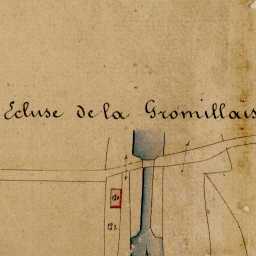 Ecluse de la Gromillais